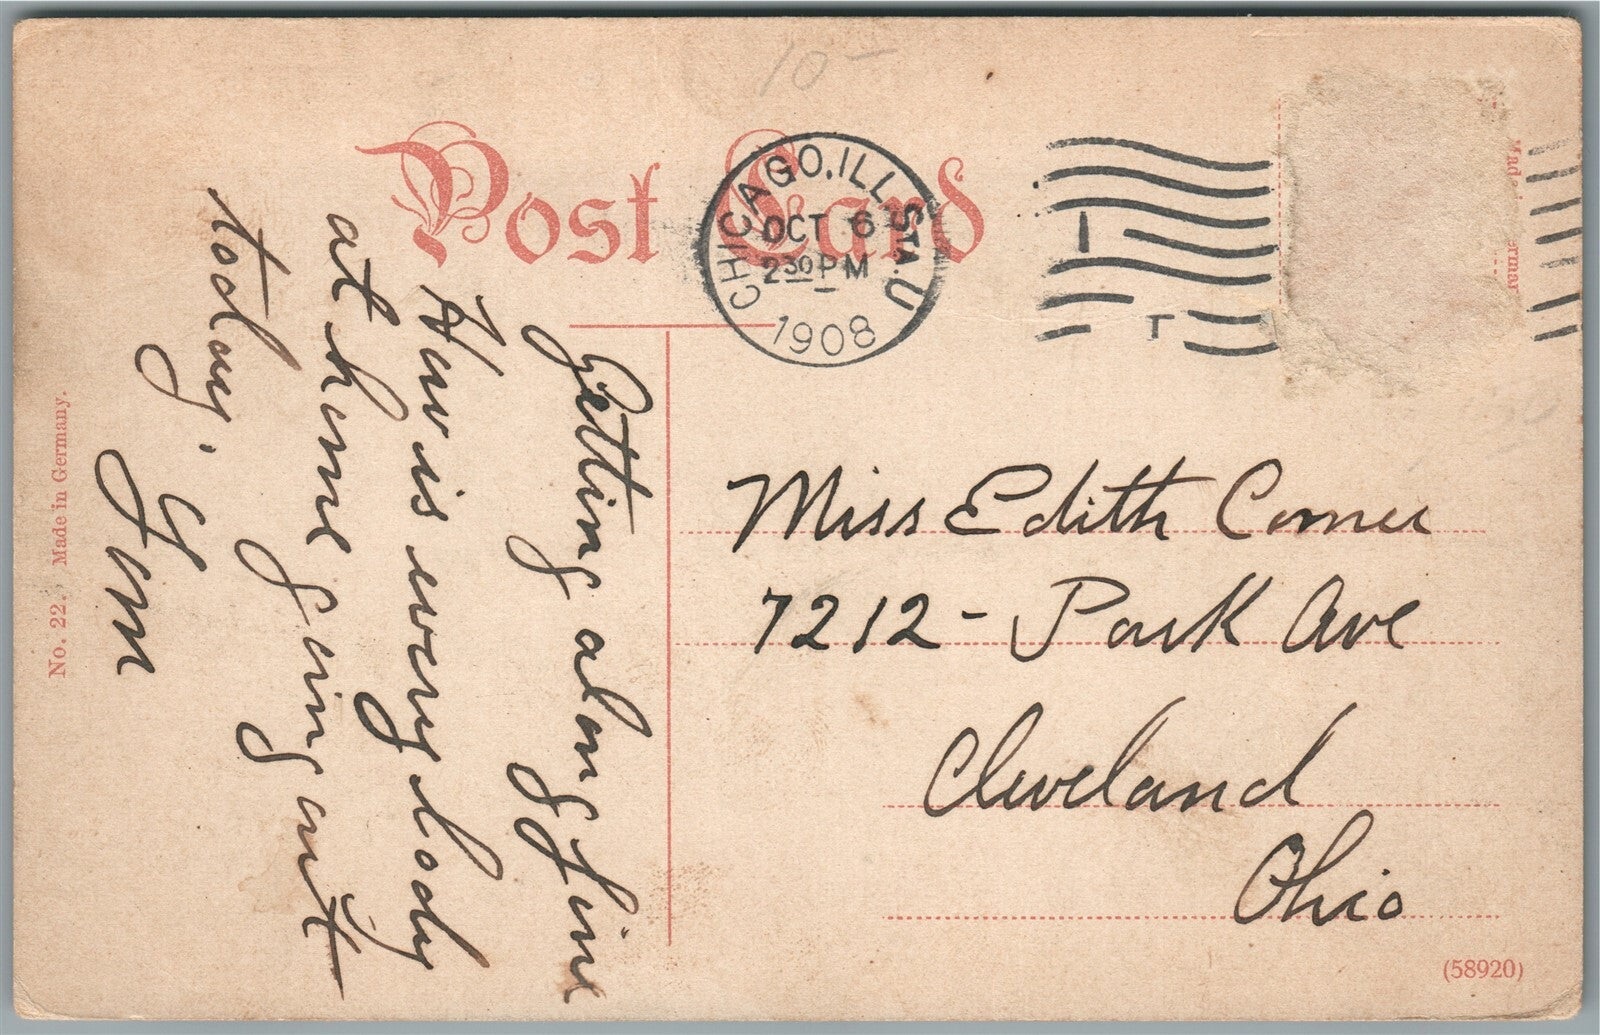 10-
Post Card
CHICAGO, ILL. STA. U
OCT 6
2 30 PM
1908
Getting along fine
How is every body
at home going out
today.
Miss Edith Comer
7212 - Park Ave
Cleveland
Ohio
No. 22. Made in Germany.
(58920)